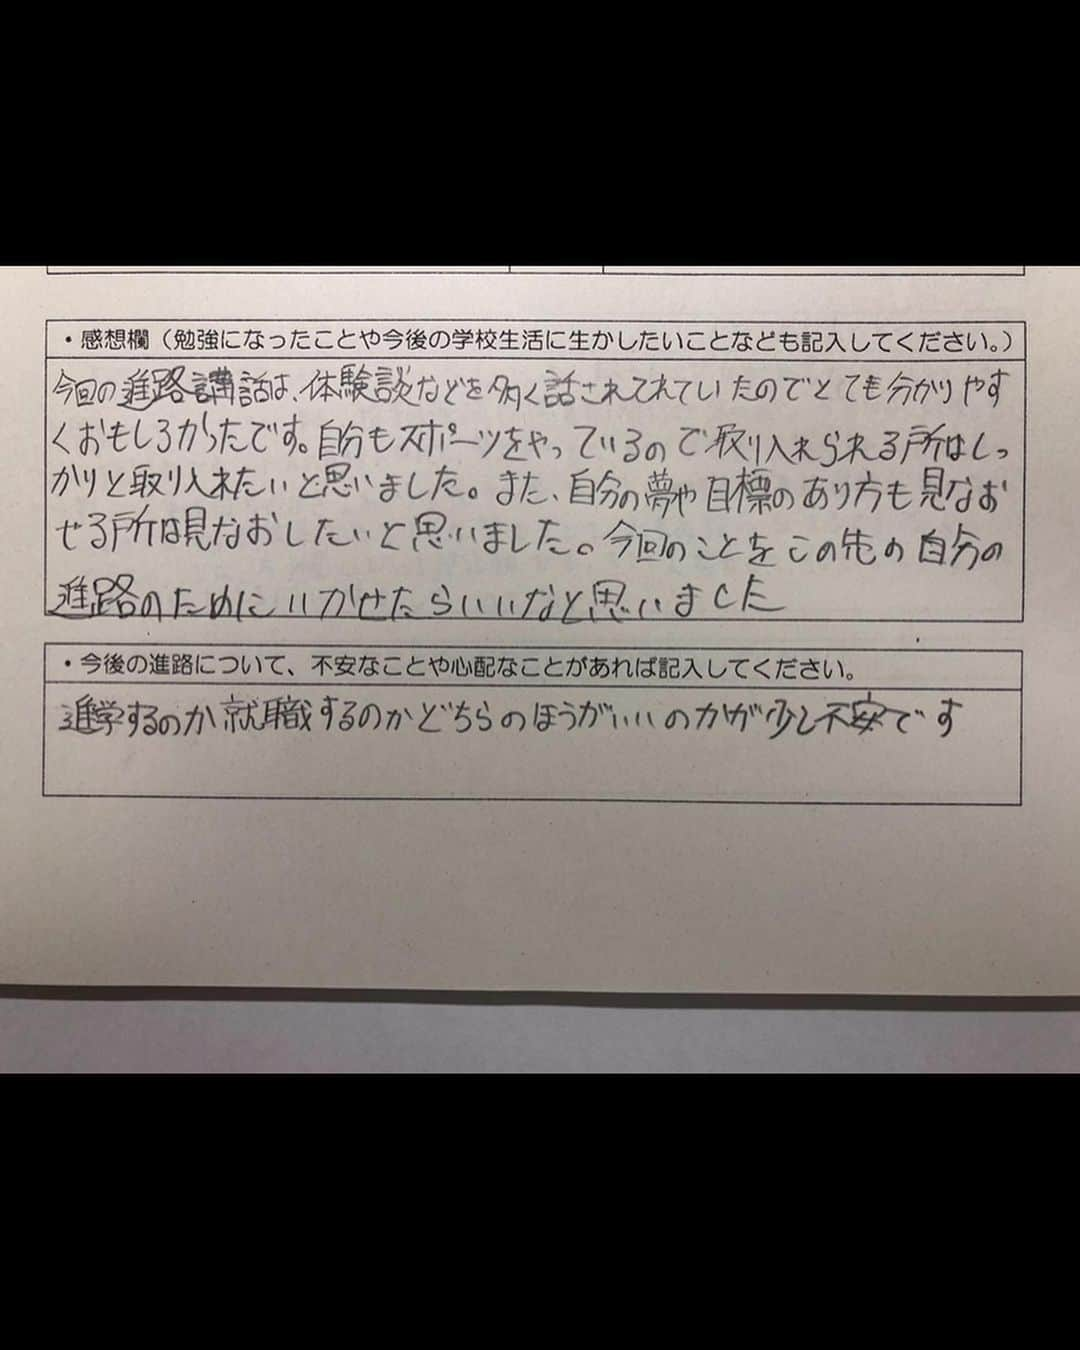 ・感想欄（勉強になったことや今後の学校生活に生かしたいことなども記入してください。）
今回の進路講話は、体験談などを多く話されてれていたのでとても分かりやす
くおもしろかったです。自分もスポーツをやっているので取り入れられる所はしっ
かりと取り入れたいと思いました。また、自分の夢や目標のあり方も見なお
せる所は見なおしたいと思いました。今回のことをこの先の自分の
進路のためにいかせたらいいなと思いました
・今後の進路について、不安なことや心配なことがあれば記入してください。
進学するのか就職するのかどちらのほうがいいのかが少し不安です